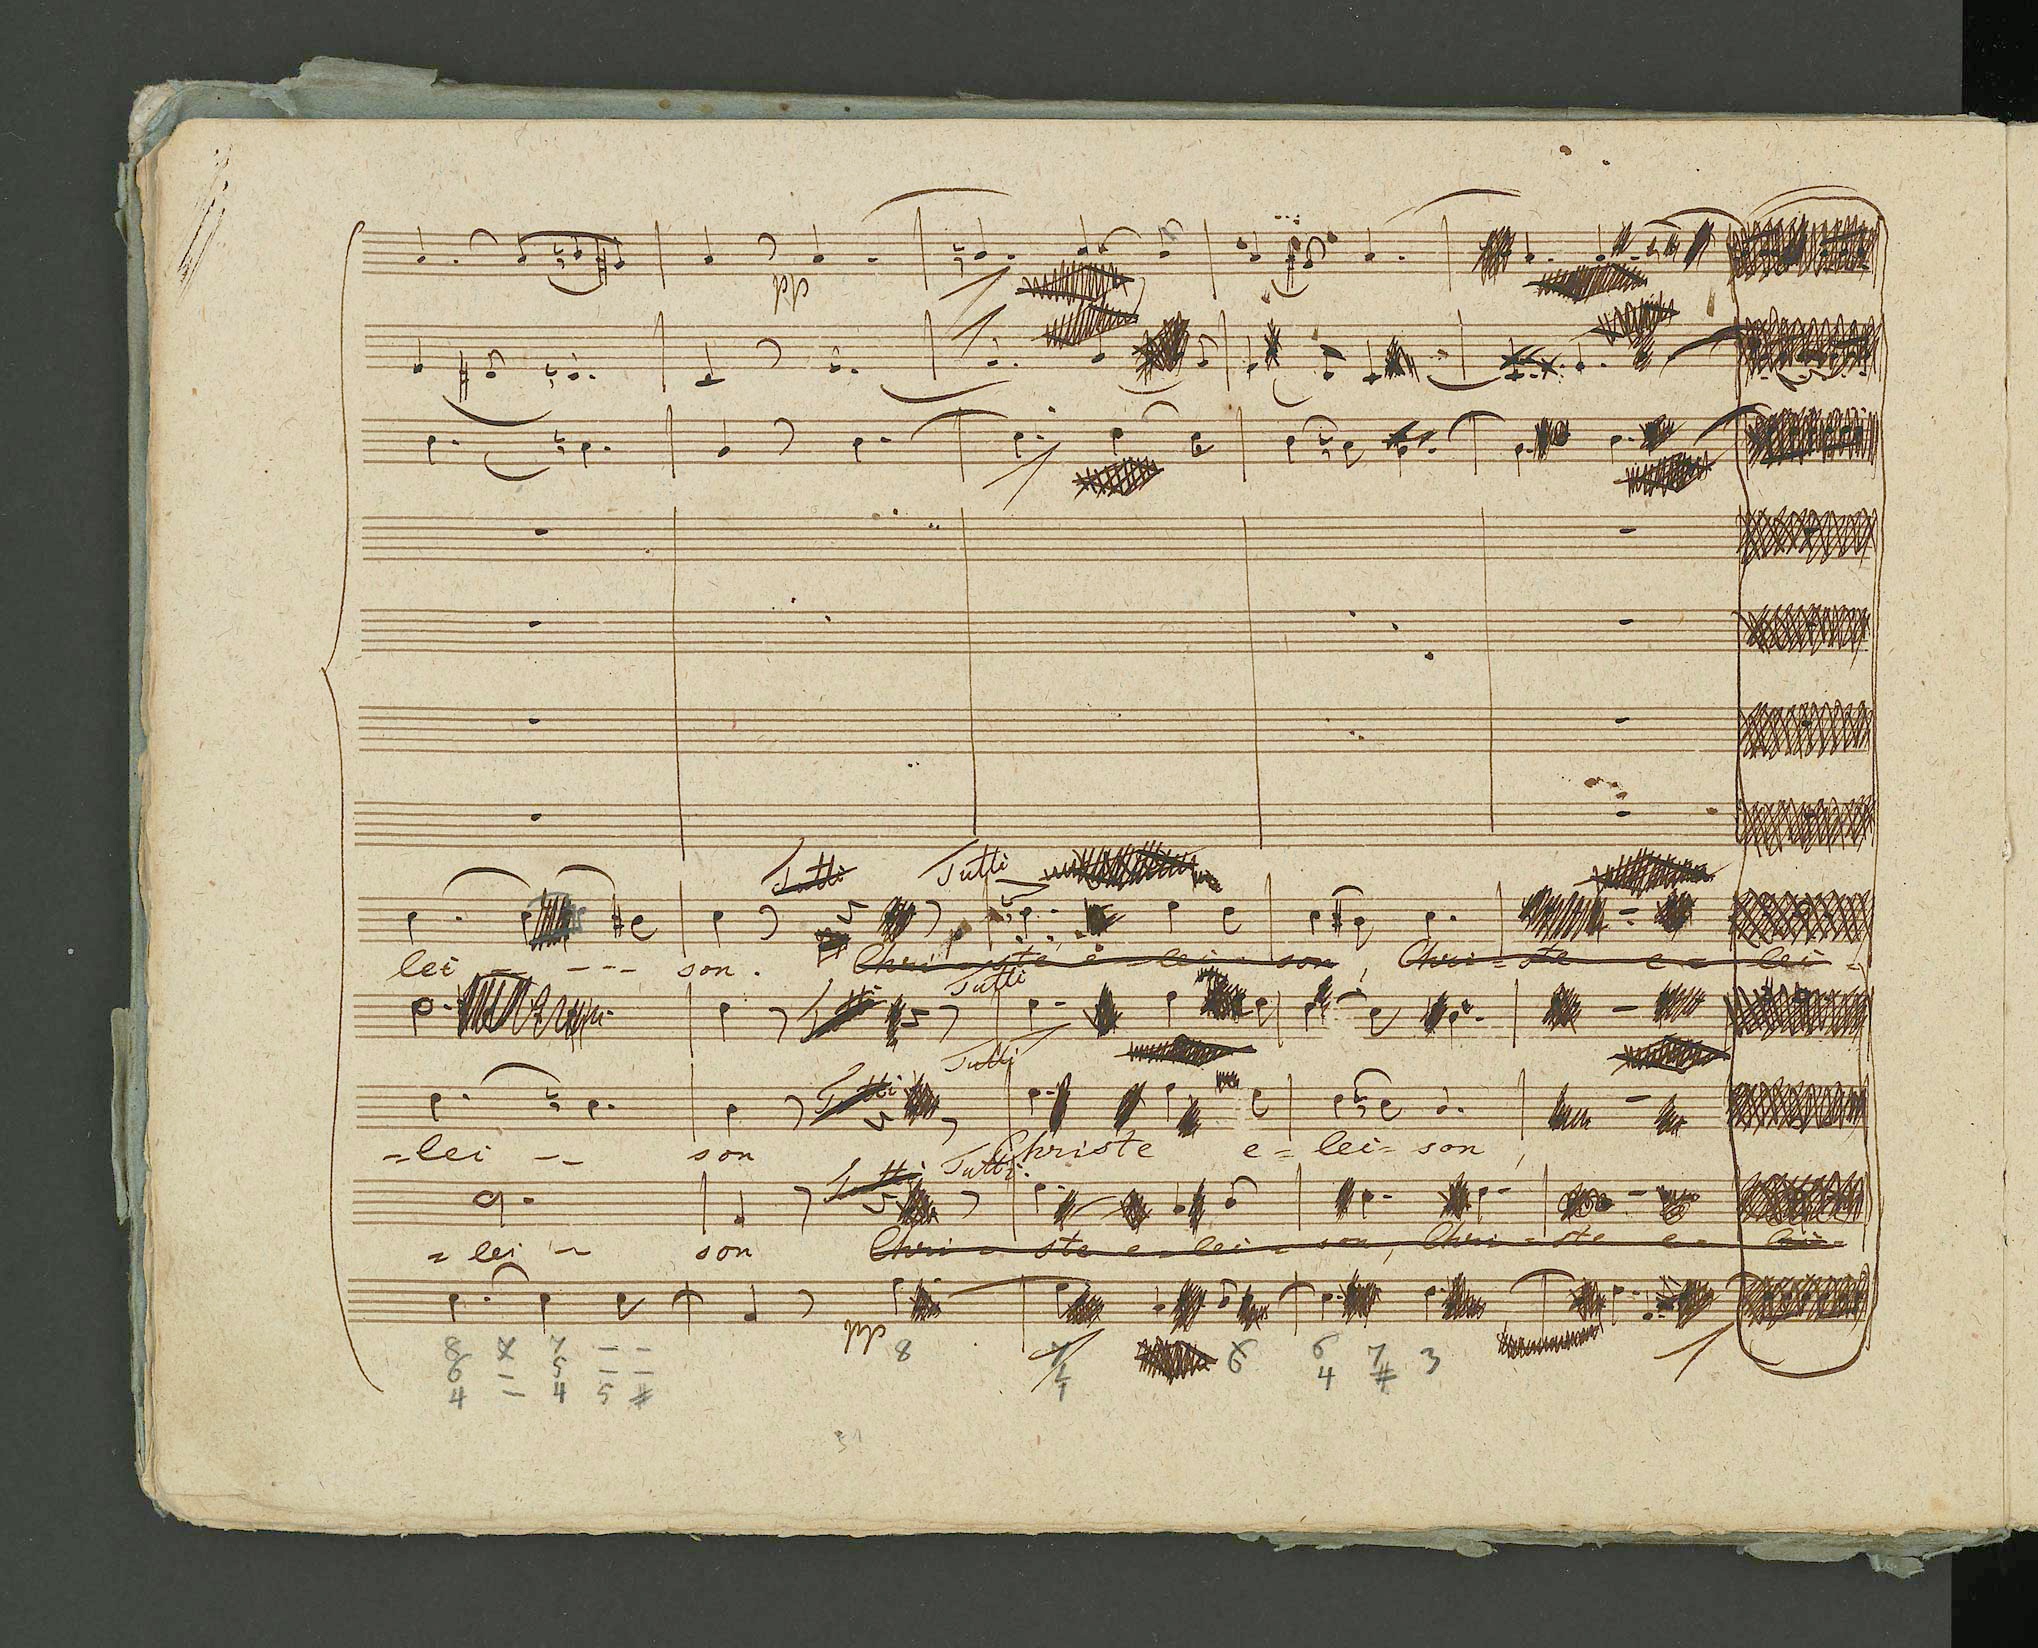 pp
Tutti Tutti
lei - - - - - son. Chri - ste e - lei - son, Chri - ste e - lei -
Tutti
Tutti
Tutti
Tutti
- lei - - son Christe e - lei - son,
Tutti Tutti
- lei - son Chri - ste e - lei - son, Chri - ste e - lei -
pp
8 7 - - 8 6 6 7 3
6 - 5 - - 4 #
4 - 4 5 #
51